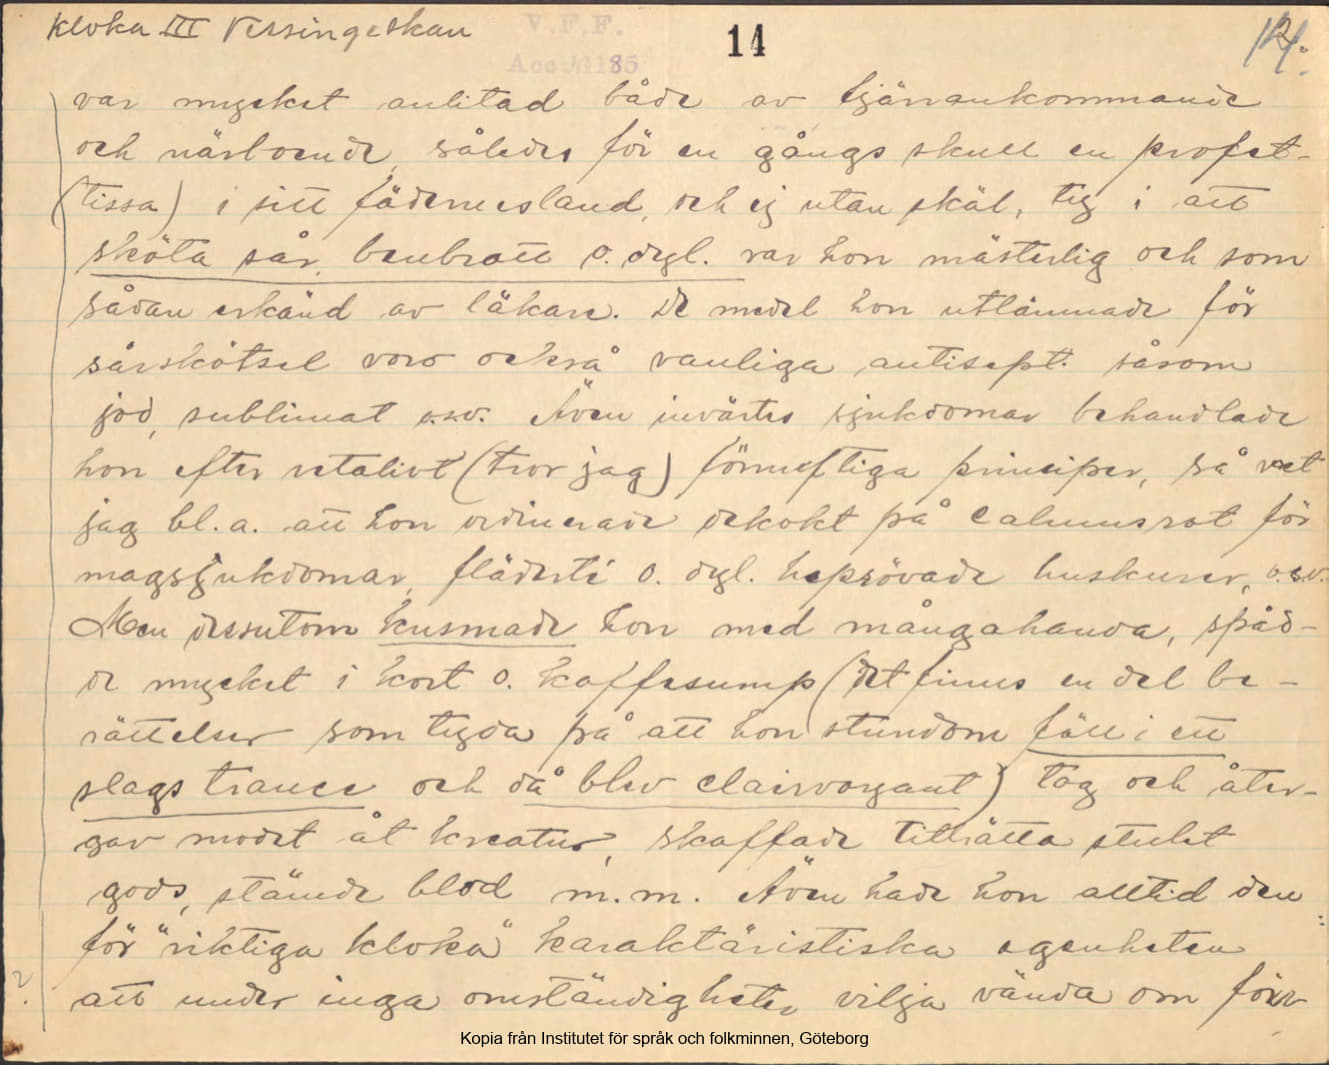 Kloka III Vessingeskan
V.F.F.
14
Acc №1185
var mycket anlitad både av fjärrankommande
och närboende, således för en gångs skull en profet-
(tissa) i sitt fädernesland, och ej utan skäl, ty i att
sköta sår, benbrott o. dyl. var hon mästerlig och som
sådan erkänd av läkare. De medel hon utlämnade för
sårskötsel voro också vanliga antisept. såsom
jod, sublimat o.s.v. Även invärtes sjukdomar behandlade
hon efter relativt (tror jag) förnuftiga principer, så vet
jag bl.a. att hon ordinerade dekokt på calmusrot för
magsjukdomar, fläderté o. dyl. beprövade huskurer, o.s.v.
Men dessutom kusmade hon med mångahanda, spåd-
de mycket i kort o. kaffesump (det finns en del be-
rättelser som tyda på att hon stundom föll i ett
slags trance och då blev clairvoyant) tog och åter-
gav modet åt kreatur, skaffade tillrätta stulet
gods, stämde blod m.m. Även hade hon alltid den
för "riktiga kloka" karaktäristiska egenheten
att under inga omständigheter vilja vända om förr
Kopia från Institutet för språk och folkminnen, Göteborg